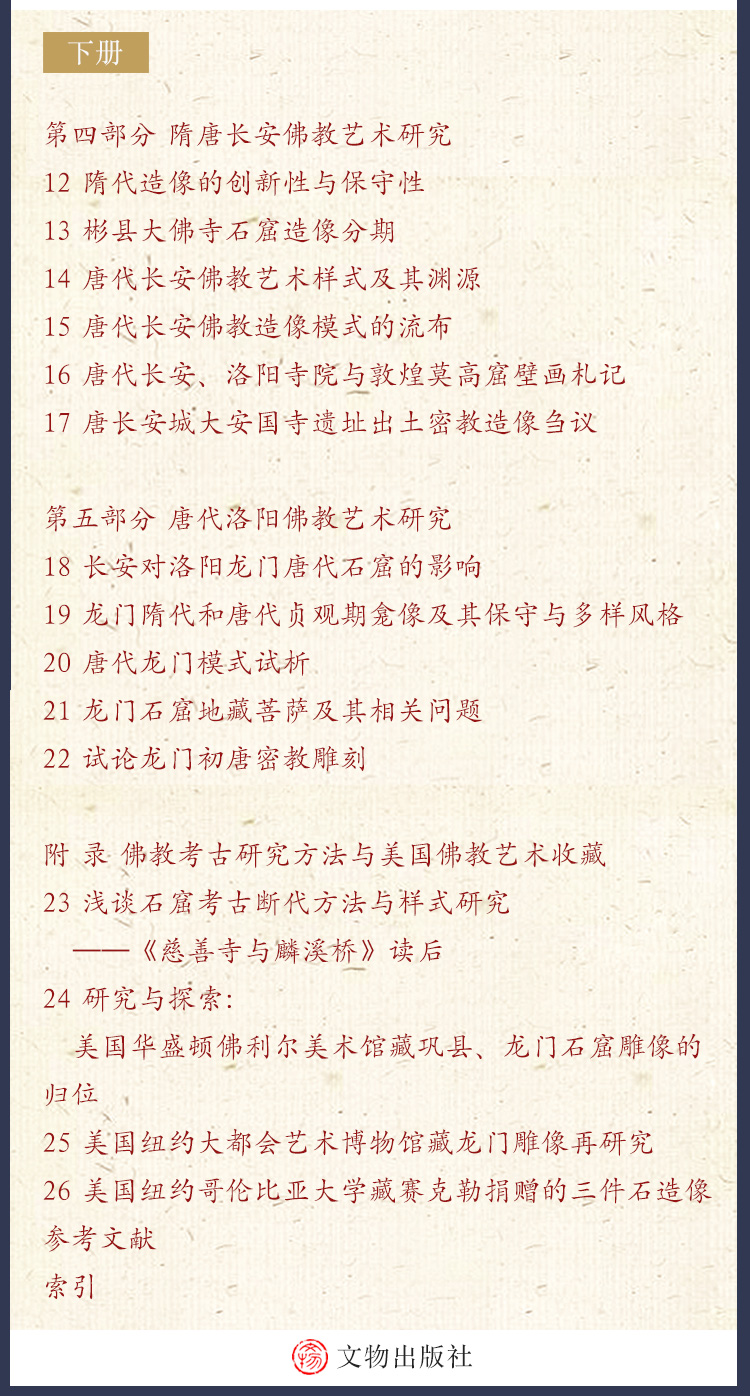 下册
第四部分 隋唐长安佛教艺术研究
12 隋代造像的创新性与保守性
13 彬县大佛寺石窟造像分期
14 唐代长安佛教艺术样式及其渊源
15 唐代长安佛教造像模式的流布
16 唐代长安、洛阳寺院与敦煌莫高窟壁画札记
17 唐长安城大安国寺遗址出土密教造像刍议
第五部分 唐代洛阳佛教艺术研究
18 长安对洛阳龙门唐代石窟的影响
19 龙门隋代和唐代贞观期龛像及其保守与多样风格
20 唐代龙门模式试析
21 龙门石窟地藏菩萨及其相关问题
22 试论龙门初唐密教雕刻
附 录 佛教考古研究方法与美国佛教艺术收藏
23 浅谈石窟考古断代方法与样式研究
——《慈善寺与麟溪桥》读后
24 研究与探索：
美国华盛顿佛利尔美术馆藏巩县、龙门石窟雕像的
归位
25 美国纽约大都会艺术博物馆藏龙门雕像再研究
26 美国纽约哥伦比亚大学藏赛克勒捐赠的三件石造像
参考文献
索引
文物出版社